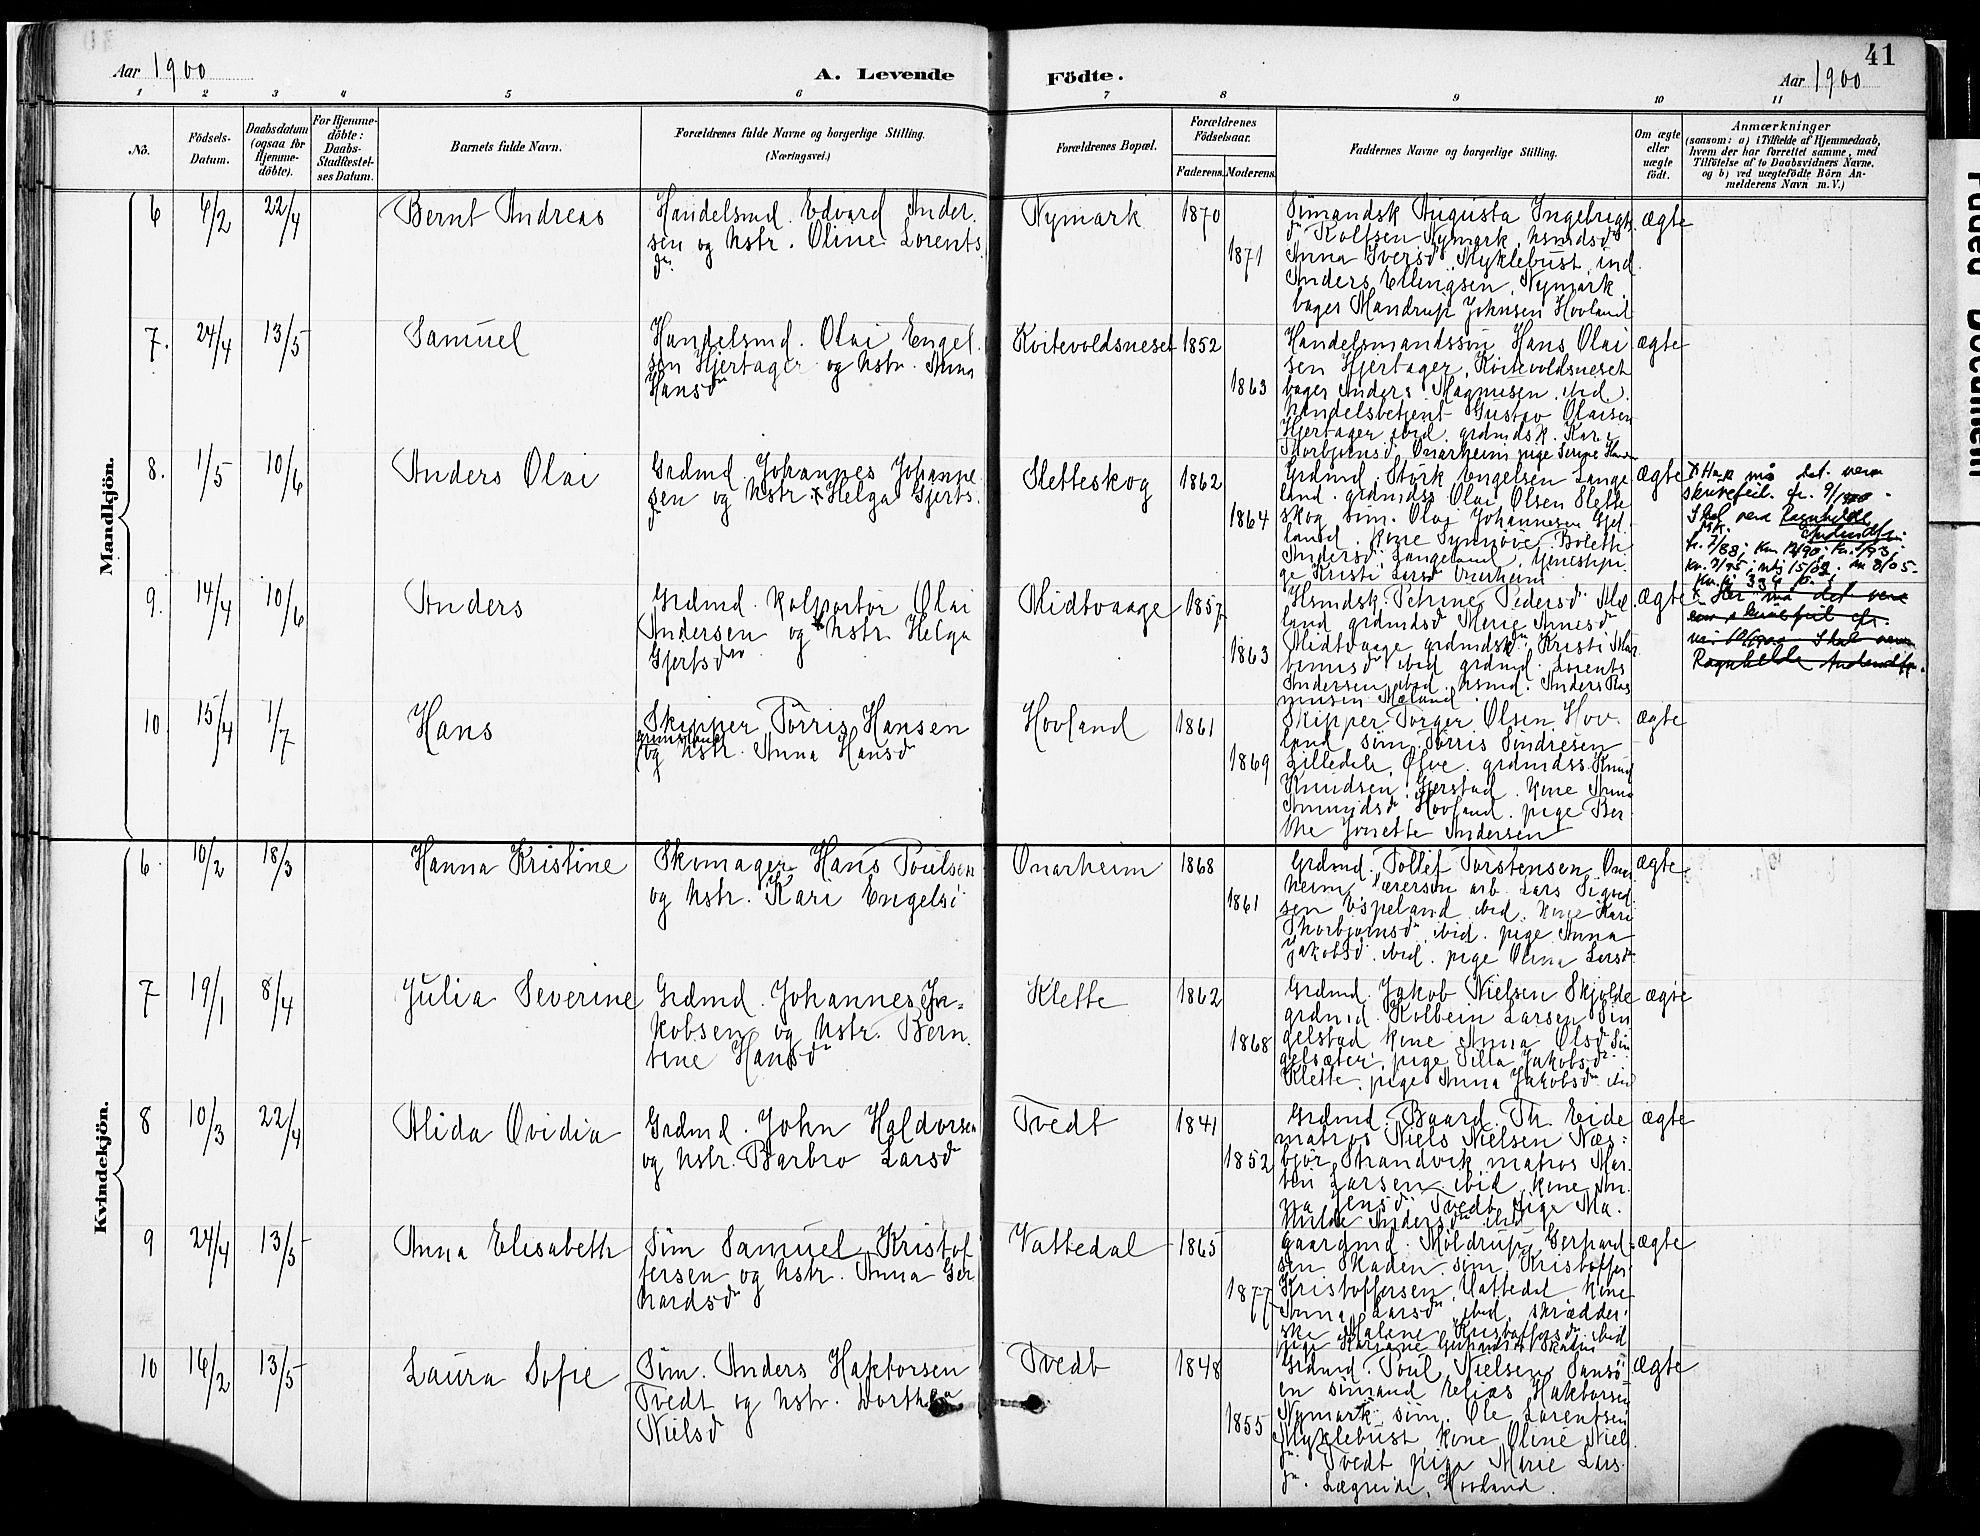 Aar 1900
A. Levende
Födte.
41
Aar 1900
1 2 3 4 5 6 7 8 9 10 11
No.
Födsels-
Datum.
Daabsdatum
(ogsaa for
Hjemme-
döbte).
For Hjemme-
döbte:
Daabs-
Stadfæstel-
ses Datum.
Barnets fulde Navn.
Forældrenes fulde Navne og borgerlige Stilling.
(Næringsvei.)
Forældrenes Bopæl.
Forældrenes
Födselsaar.
Faderens. Moderens.
Faddernes Navne og borgerlige Stilling.
Om ægte
eller
uægte
födt.
Anmærkninger
(saasom: a) i Tilfælde af Hjemmedaab,
hvem der har forrettet samme, med
Tilföielse af to Daabsvidners Navne.
og b) ved uægtefödte Börn An-
melderens Navn m. V.)
Mandkjön.
6 6/2 22/4 Bernt Andreas
Handelsmd. Edvard Ander.
sen og hstr. Oline Lorents
dr
Nymark 1870
1871
Sömandsk Augusta Ingebrigts
dr Rolfsen Nymark, hsmdsdr
Anna Iversdr Myklebust, ind
Anders Ellingsen, Nymark
bager Mandrup Johnsen Hovland
ægte
7. 24/4 13/5 Samuel
Handelsmd. Olai Engel.
sen Hjertager og hstr. Anna
Hansdr
Kvitevoldsneset 1852
1863
Handelsmandssön Hans Olai
sen Hjertager, Kvitevoldsneset
bager Anders Magnusen ibid.
handelsbetjent Gustav Olaisen
Hjertager ibid. grdmdsk. Kari
Torbjörnsdr Onarheim pige
ægte
8. 1/5 10/6 Anders Olai
Grdmd. Johannes Johanne
sen og hstr x Helga Gjerts.
dr
Sletteskog 1862
1864
Grdmd. Störk Engelsen Lange
land. grdmdss Olai Olsen Slette
skog söm. Olai Johannesen Gjel
land, kone Synnöve Bolette
Andersdr Langeland, tjenestepi
ge Kristi Larsdr Onarheim
ægte
x Her må det vera
skrivefeil. cfr. 9/1900
Skal vera Ragnhilde
Andersdtr
9. 14/4 10/6 Anders
Grdmd. kolportör Olai
Andersen og x hstr Helga
Gjertsdr
Midtvaage 1857
1863
Hsmdsk Petrine Pedersdr Mæ
land grdmdsd Marie Arnesdr
Midtvaage grdmdsk Kristi Mar
ibid grdmd. Lorents
Andersen ibid. hsmd. Anders Ras
musen Mæland
ægte
x Her må det vera
ein skrivefeil cfr.
Skal vera
Ragnhilde Andersdtr.
10 15/4 1/7 Hans
Skipper Törris Hansen
og hstr. Anna Hansdr
Hovland 1861
1869
Skipper Torger Olsen Hov.
land, söm Törris Sindresen
Lilledale, Ölve. grdmdss. Knud
Knudsen Gjerstad. kone Anna
Amundsdr Hovland. pige Ber
the Jonette Andersen
ægte
Kvindekjön.
6. 10/2 18/3 Hanna Kristine
Skomager Hans Poulsen
og hstr. Kari Engelsd
Onarheim 1868
1861
Grdmd. Tollef Torstensen Onar
heim, arb. Lars Sigvad
sen Espeland ibid. kone Kari
Thorbjörnsdr ibid. pige Anna
Jakobsd. ibid. pige Olina Larsdr
ægte
7 19/1 8/4 Julia Severine
Grdmd. Johannes Ja-
kobsen og hstr. Bern
tine Hansdr
Klette 1862
1868
Grdmd. Jakob Nielsen Skjolde
grdmd. Kolbein Larsen Sin
gelstad kone Anna Olsdr Sin
gelsæter, pige Silla Jakobsdr
Klette, pige Anna Jakobsdr ibid
ægte
8 10/3 22/4 Alida Ovidia
Grdmd. John Haldorsen
og hstr. Barbro Larsdr
Tvedt 1841
1852
Grdmd. Baard Th. Eide
matros Niels Nielsen Næs:
björ Strandvik, matros Mar.
tin Larsen ibid kone An.
na Jensdr Tvedt, pige Ma.
thilde Andersdr ibid
ægte
9 24/4 13/5 Anna Elisabeth
Söm Samuel Kristof
fersen og hstr. Anna Ger
hardsdr
Vattedal 1865
1877
gaardmd. Möldrup Gerhard-
sen Skaden. söm. Kristoffer
Kristoffersen Vattedal kone
Anna Larsdr ibid, skrædder:
ske Malene Kristoffersdr ibid
pige Karjane Gerhardsdr Skaden
ægte
10 16/2 13/5 Laura Sofie
Söm. Anders Haktorsen
Tvedt og hstr. Dorthea
Nielsdr
Tvedt 1848
1855
Grdmd. Poul Nielsen Sansö
en sömand Elias Haktorsen
Nymark söm. Ole Lorentsen
Myklebust kone Oline Niel
dr. Tvedt pige Marie Lars.
dr. Lægreide, Hovland.
ægte